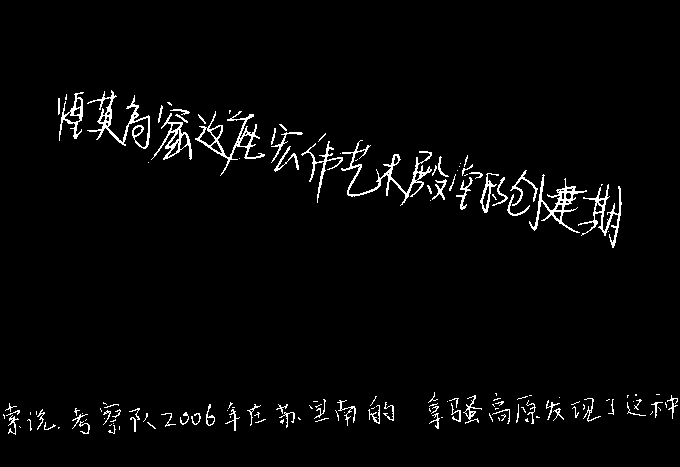 煌莫高窟这座宏伟艺术殿堂的创建期
索说.考察队2006年在苏里南的 拿骚高原发现了这种